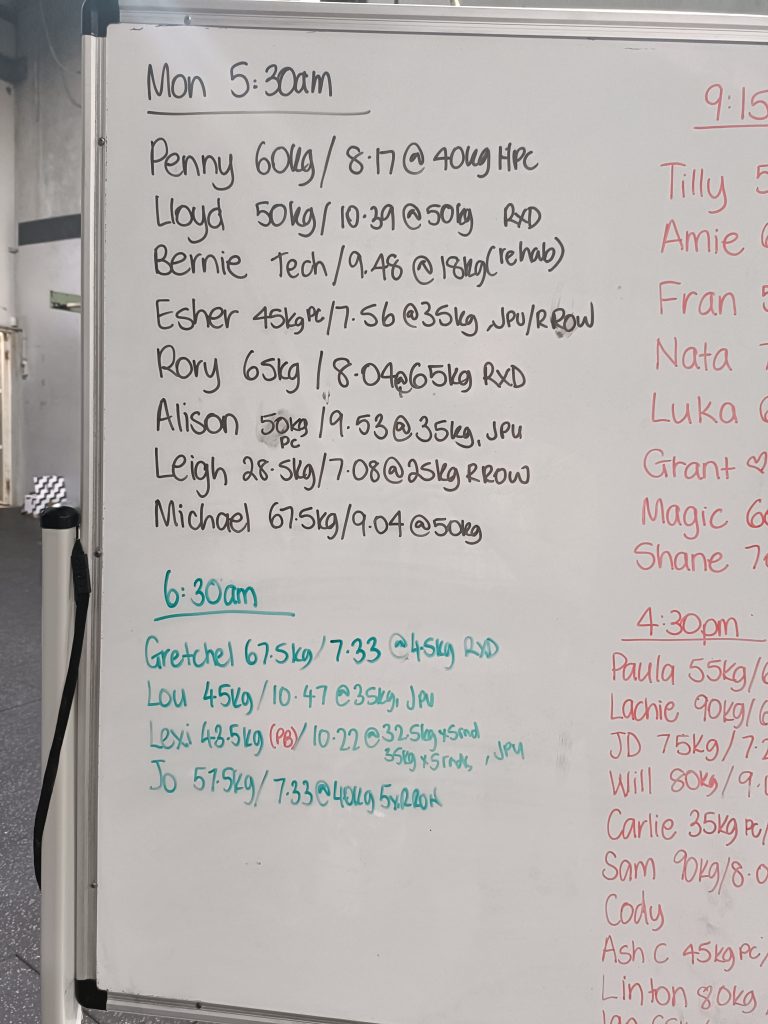 Mon 5:30am
Penny 60kg / 8.17 @ 40kg HPC
Lloyd 50kg / 10.39 @ 50kg RXD
Bernie Tech / 9.48 @ 18kg (rehab)
Esher 45kg PC / 7.56 @ 35kg JPU/RROW
Rory 65kg / 8.04 @ 65kg RXD
Alison 50kg PC / 9.53 @ 35kg, JPU
Leigh 28.5kg / 7.08 @ 25kg RROW
Michael 67.5kg / 9.04 @ 50kg
6:30am
Gretchel 67.5kg / 7.33 @ 45kg RXD
Lou 45kg / 10.47 @ 35kg, JPU
Lexi 43.5kg (PB) / 10.22 @ 32.5kg x 5rnd
35kg x 5rnds, JPU
Jo 57.5kg / 7.33 @ 40kg 5xRROW
9:15
Tilly 5
Amie 6
Fran 5
Nata 7
Luka 6
Grant ♡
Magic 6
Shane 7
4:30pm
Paula 55kg/6
Lachie 90kg/6
JD 75kg/7.2
Will 80kg/9.
Carlie 35kg PC/
Sam 90kg/8.0
Cody
Ash C 45kg PC/
Linton 80kg